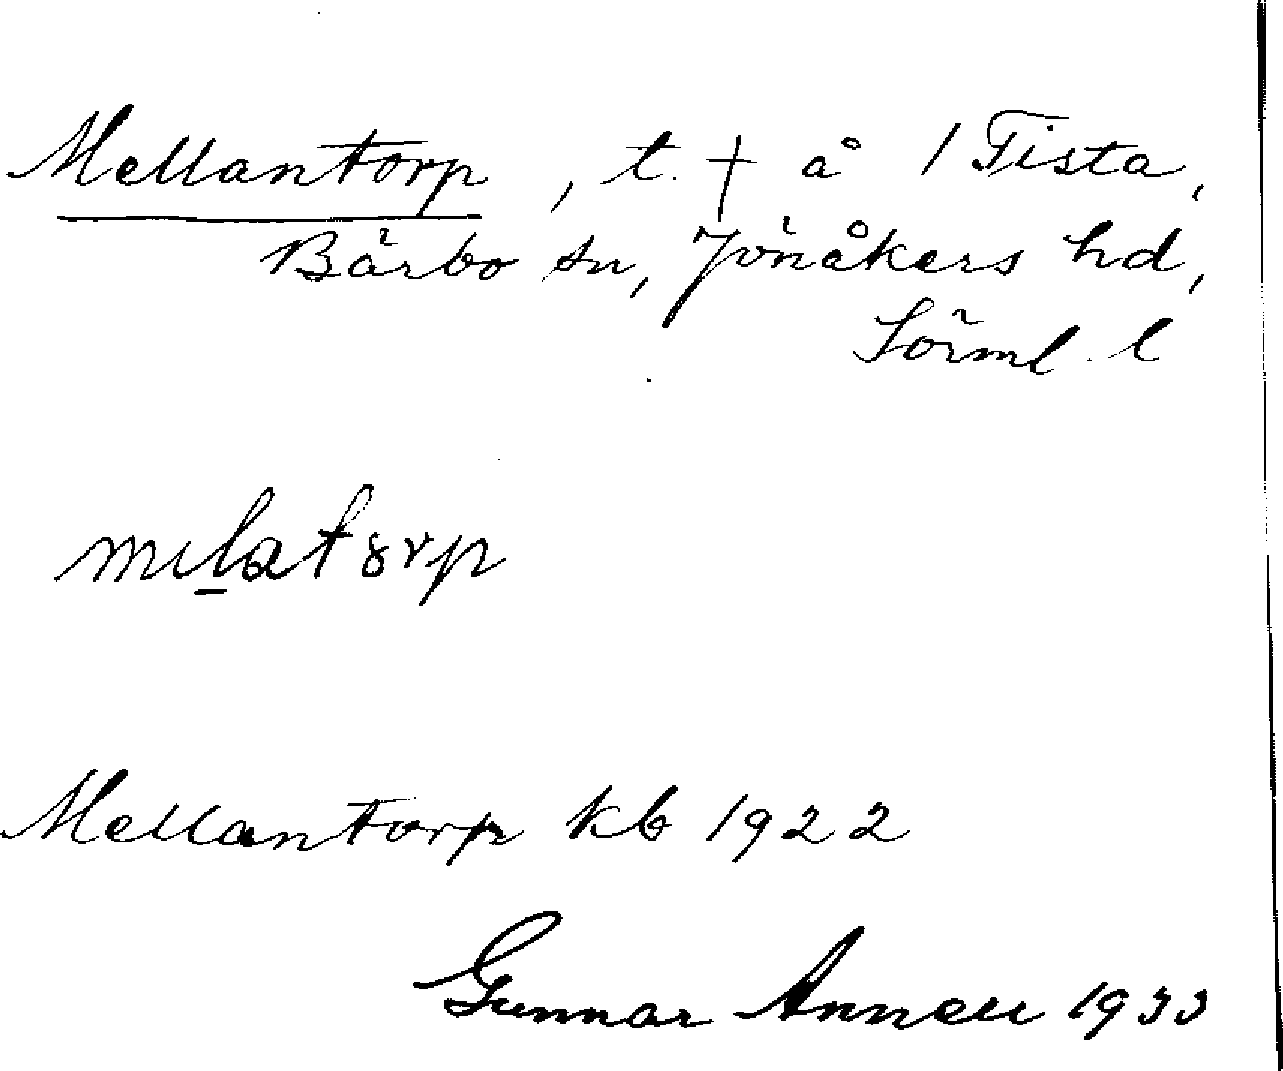 Mellantorp, t. † å 1 Tista,
Bärbo sn, Jönåkers hd,
Sörml. l
Mellantorp kb 1922
Gunnar Annell 1933